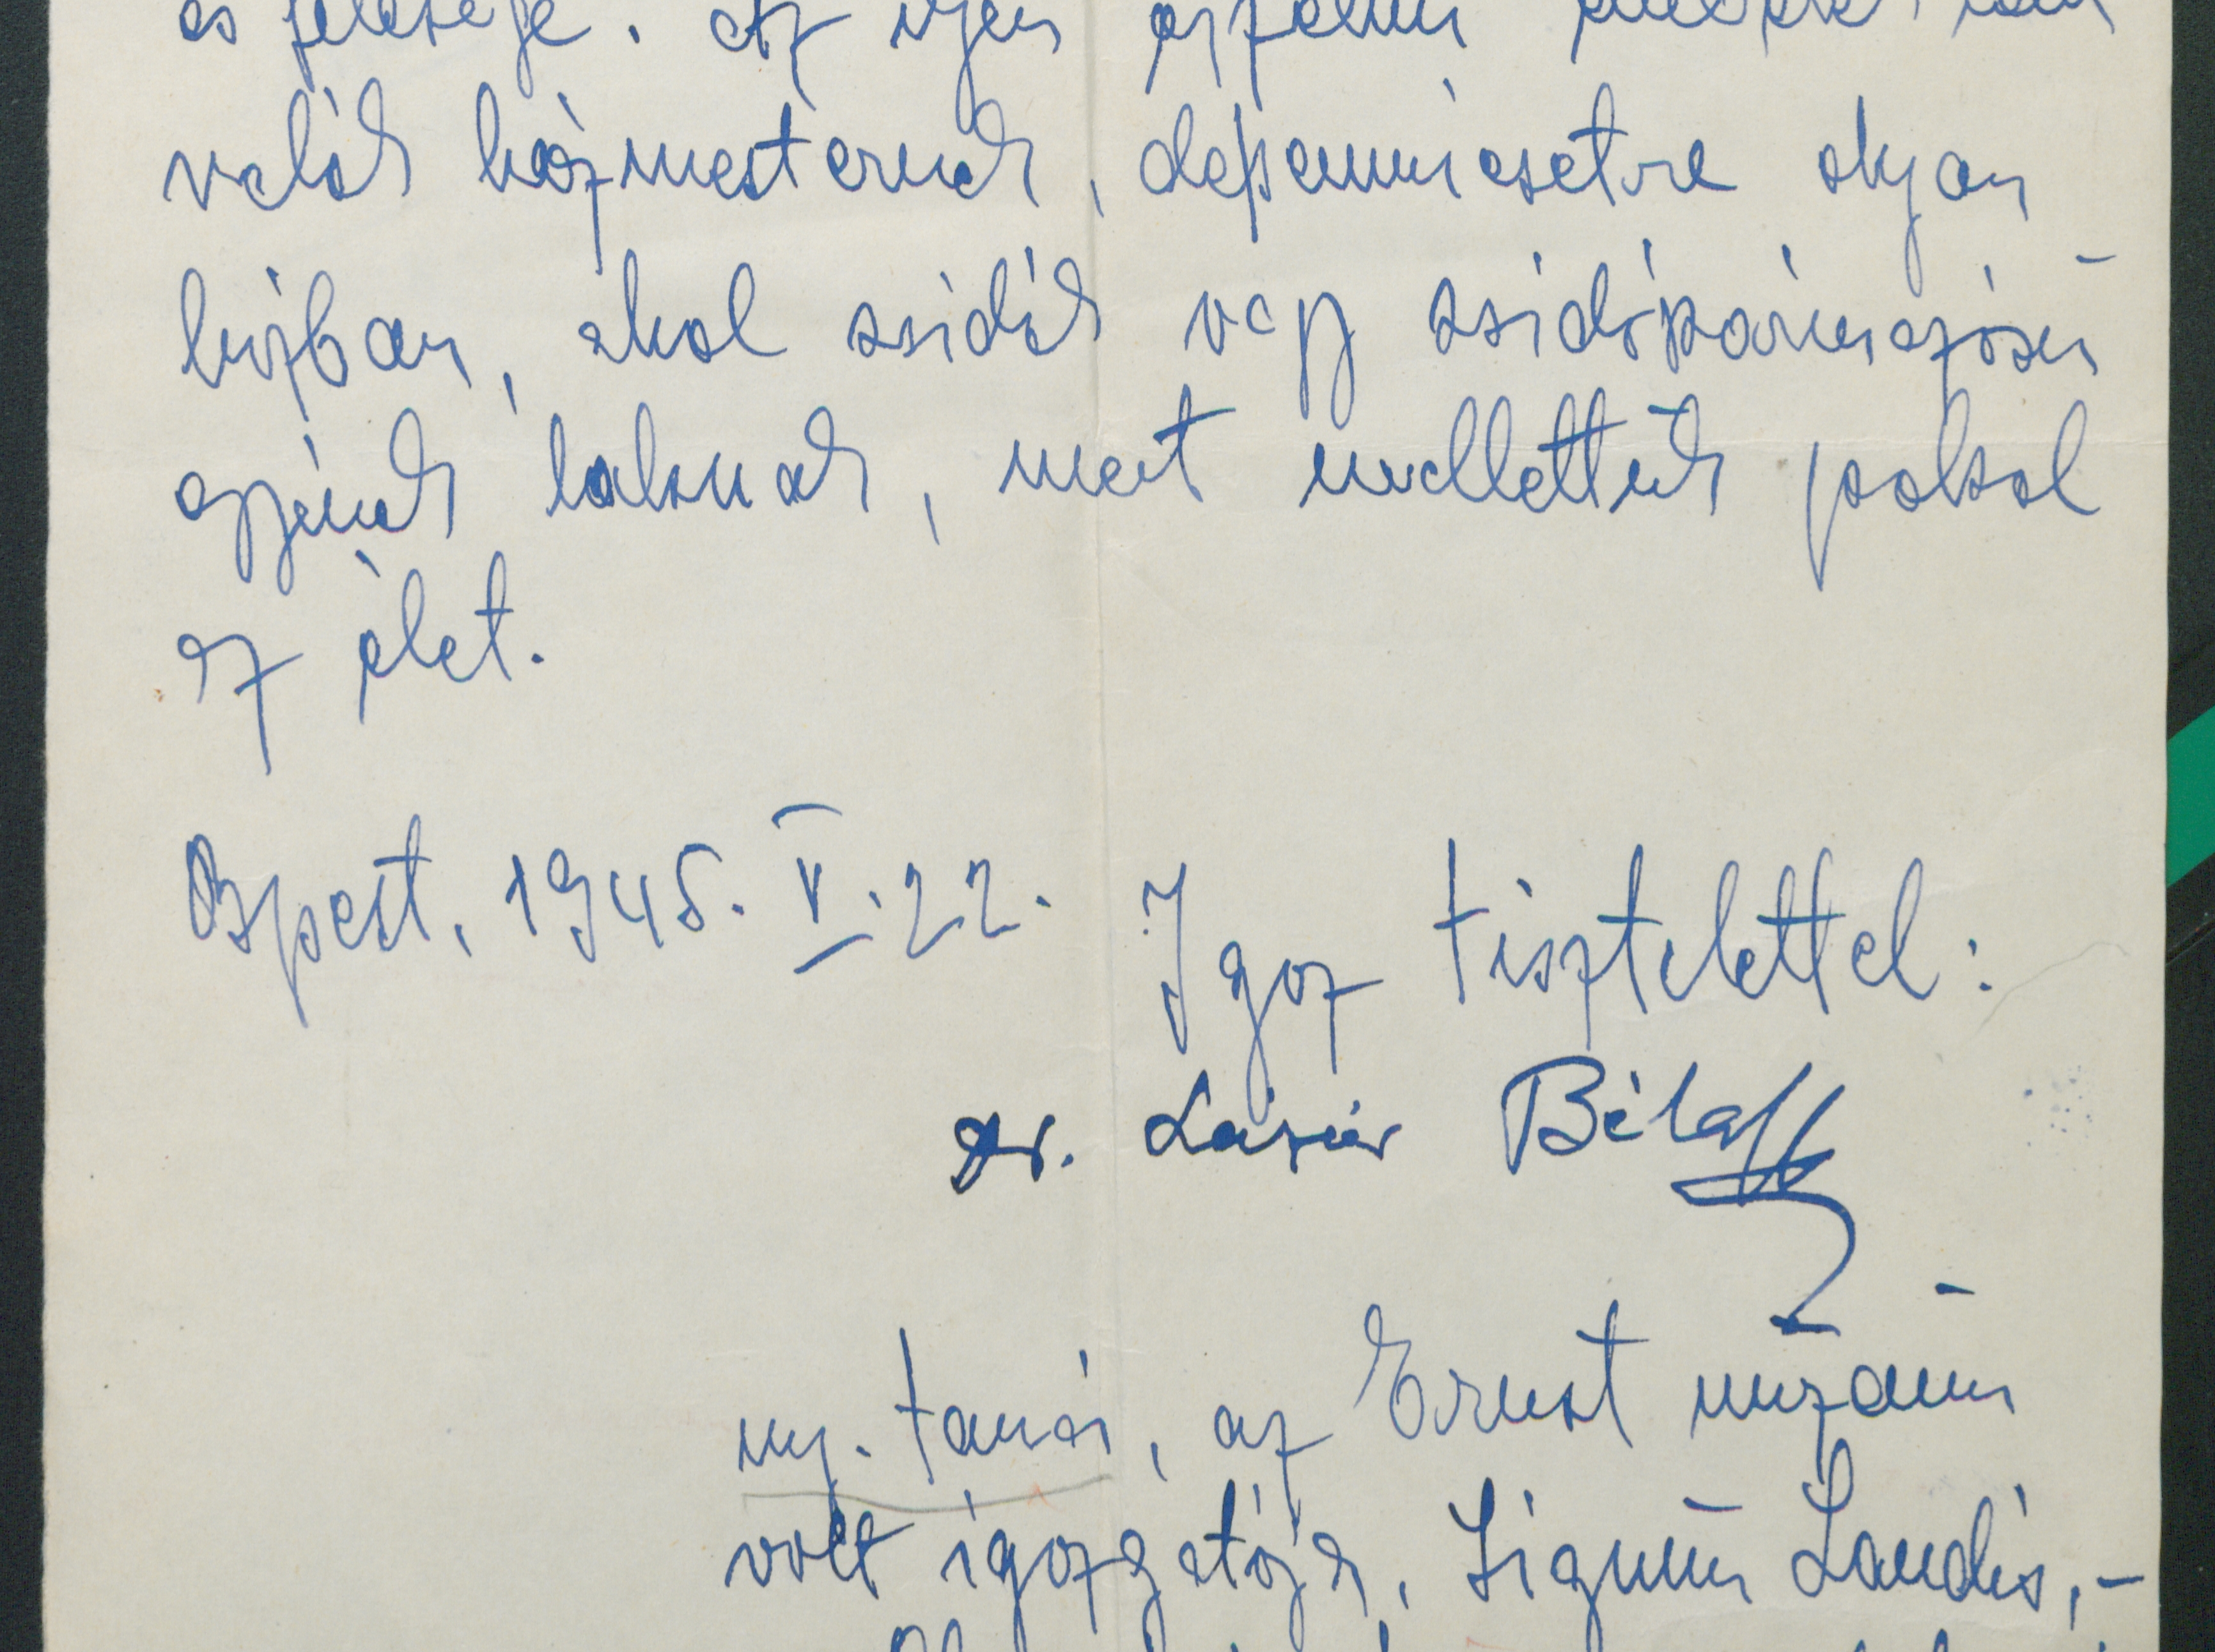 és felesége. Az ilyen
valók házmesternek, de semmiesetre olyan
házban, ahol zsidók vagy zsidószármazású
egyének laknak, mert mellettük pokol
az élet.
Bpest, 1945. V. 22. Igaz tisztelettel:
Dr. Lázár Béla
ny. tanár, az Ernst múzeum
volt igazgatója, Signum Laudis,-